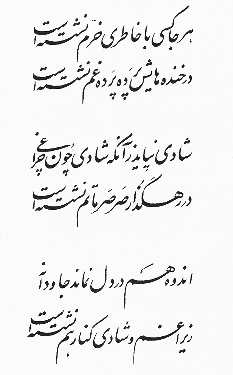 هر جا کسی با خاطری خرم نشسته است
در خنده هایش پرده پرده غم نشسته است
شادی نپاید زآنکه شادی چون چراغی
در رهگذار صرصر ماتم نشسته است
اندوه هم در دل نماند جاودانه
زیرا غم و شادی کنار هم نشسته است